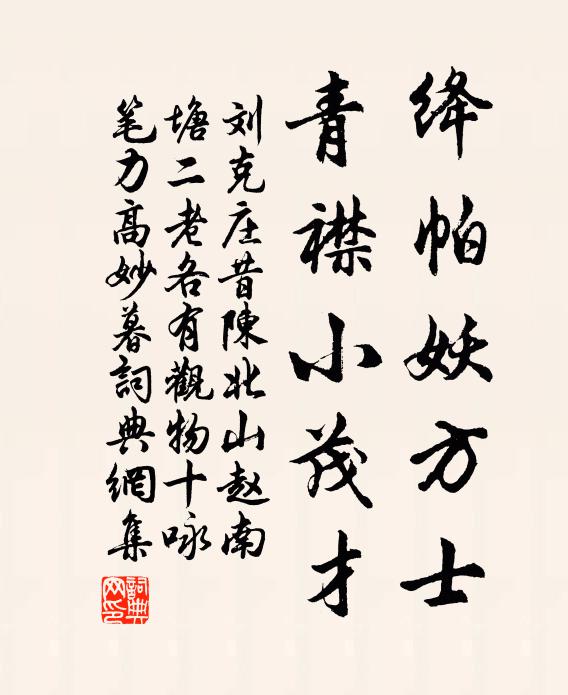 绛帕妖方士
青襟小茂才
刘克庄昔陳北山赵南
塘二老各有觀物十咏
笔力高妙暮詞典網集
詞典
网印